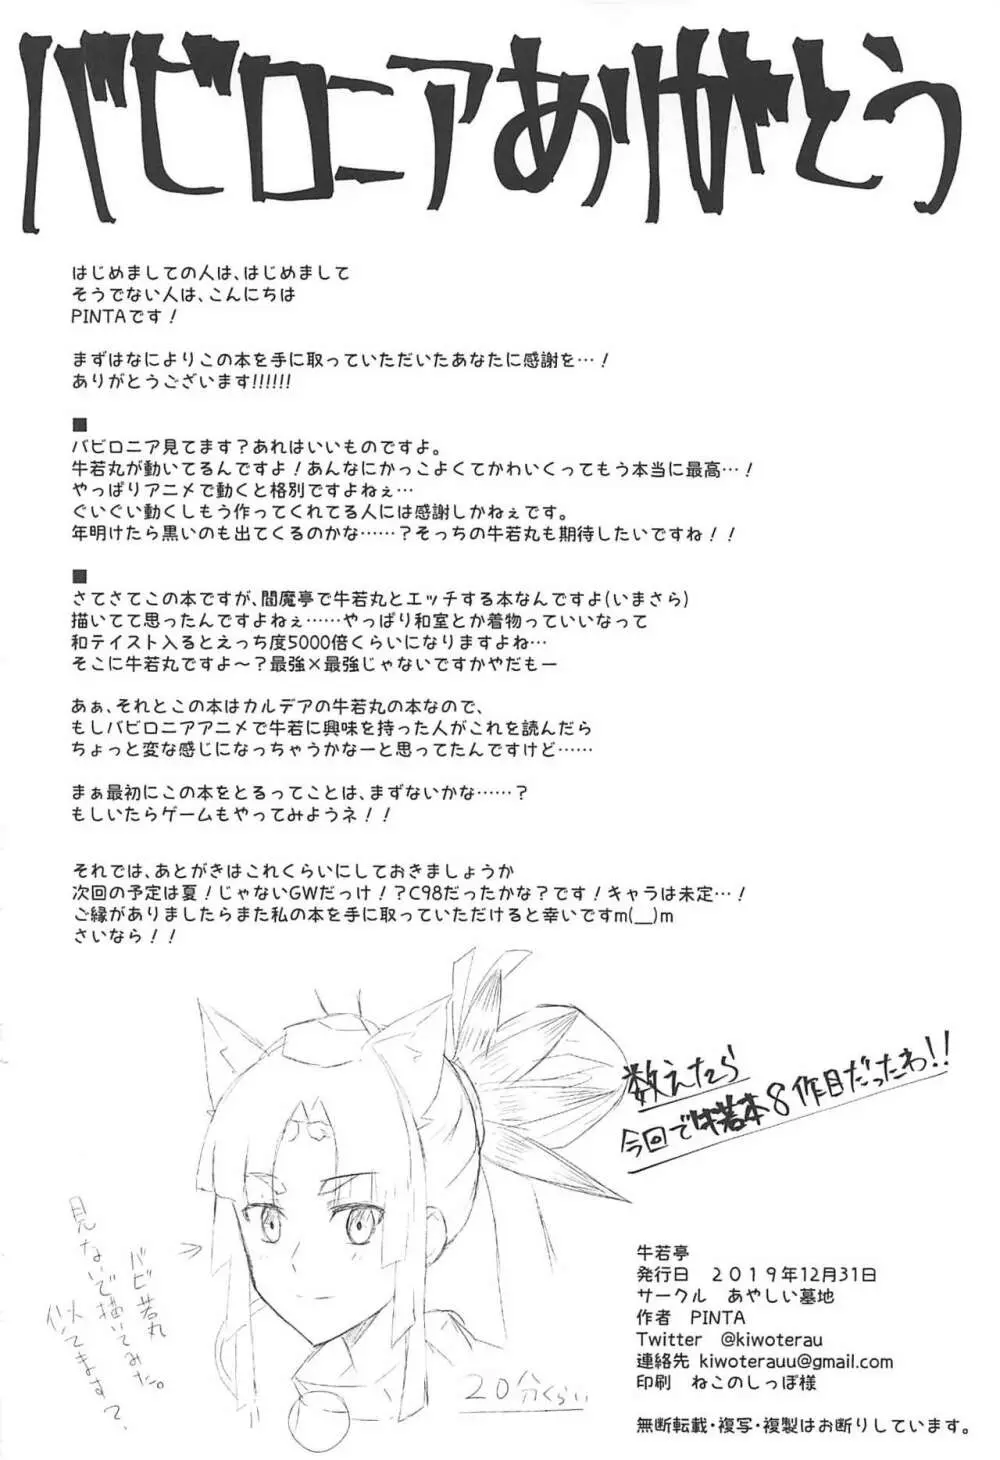 バビロニアありがとう
はじめましての人は、はじめまして
そうでない人は、こんにちは
PINTAです！
まずはなによりこの本を手に取っていただいたあなたに感謝を…！
ありがとうございます!!!!!!
■
バビロニア見てます？あれはいいものですよ。
牛若丸が動いてるんですよ！あんなにかっこよくてかわいくってもう本当に最高…！
やっぱりアニメで動くと格別ですよねぇ…
ぐいぐい動くしもう作ってくれてる人には感謝しかねぇです。
年明けたら黒いのも出てくるのかな……？そっちの牛若丸も期待したいですね！！
■
さてさてこの本ですが、閻魔亭で牛若丸とエッチする本なんですよ(いまさら)
描いてて思ったんですよねぇ……やっぱり和室とか着物っていいなって
和テイスト入るとえっち度5000倍くらいになりますよね…
そこに牛若丸ですよ～？最強×最強じゃないですかやだもー
あぁ、それとこの本はカルデアの牛若丸の本なので、
もしバビロニアアニメで牛若に興味を持った人がこれを読んだら
ちょっと変な感じになっちゃうかなーと思ってたんですけど……
まぁ最初にこの本をとるってことは、まずないかな……？
もしいたらゲームもやってみようネ！！
それでは、あとがきはこれくらいにしておきましょうか
次回の予定は夏！じゃないGWだっけ！？C98だったかな？です！キャラは未定…！
ご縁がありましたらまた私の本を手に取っていただけると幸いですm(__)m
さいなら！！
数えたら
今回で牛若本8作目だったわ!!
バビ若丸
見ないで描いてみた。
似てます？
20分くらい
牛若亭
発行日　２０１９年12月31日
サークル　あやしい墓地
作者　PINTA
Twitter　@kiwoterau
連絡先　kiwoterauu@gmail.com
印刷　ねこのしっぽ様
無断転載・複写・複製はお断りしています。